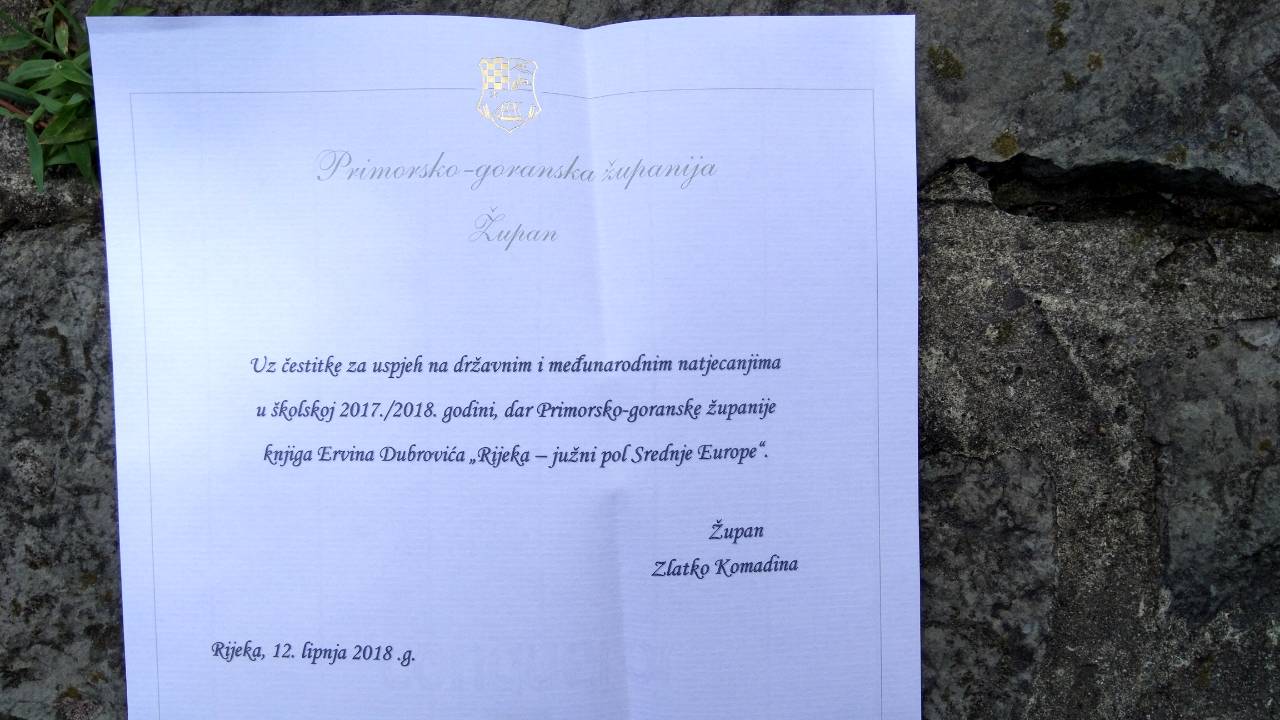 Primorsko-goranska županija
Župan
Uz čestitke za uspjeh na državnim i međunarodnim natjecanjima
u školskoj 2017./2018. godini, dar Primorsko-goranske županije
knjiga Ervina Dubrovića „Rijeka – južni pol Srednje Europe“.
Župan
Zlatko Komadina
Rijeka, 12. lipnja 2018 .g.